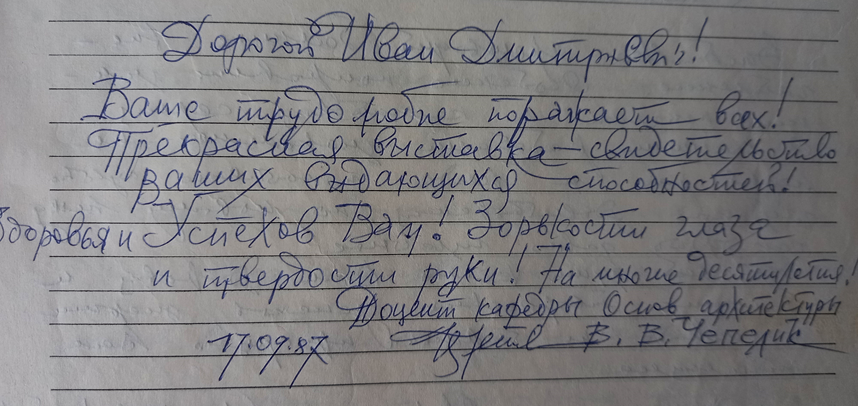 Дорогой Иван Дмитриевич!
Ваше трудолюбие поражает всех!
Прекрасная выставка – свидетельство
Ваших выдающихся способностей!
Здоровья и Успехов Вам! Зоркости глаза
и твердости руки! На многие десятилетия!
Доцент кафедры Основ архитектуры
17.09.87 В. В. Чепелик